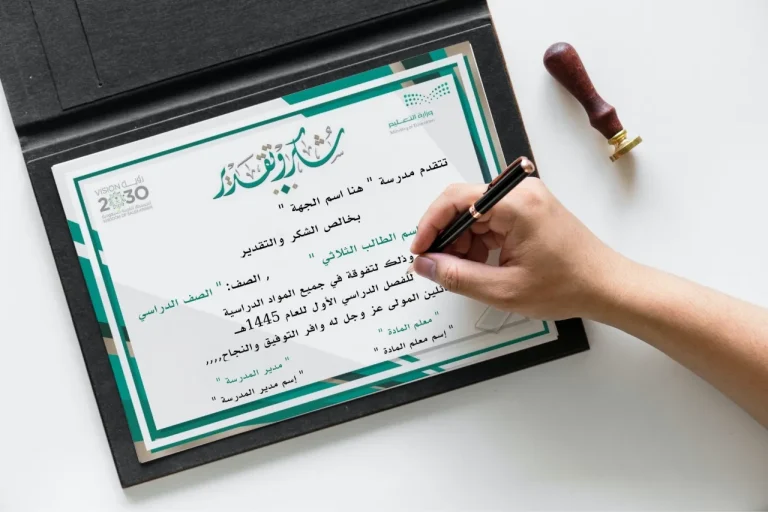 وزارة التعليم
Ministry of Education
شكر وتقدير
VISION رؤية
2030
تتقدم مدرسة " هنا اسم الجهة "
بخالص الشكر والتقدير
اسم الطالب الثلاثي "
, الصف: " الصف الدراسي
وذلك لتفوقة في جميع المواد الدراسية
للفصل الدراسي الأول للعام 1445هـ
المولى عز وجل له وافر التوفيق والنجاح,,,,
" معلم المادة "
" إسم معلم المادة "
" مدير المدرسة "
" إسم مدير المدرسة "